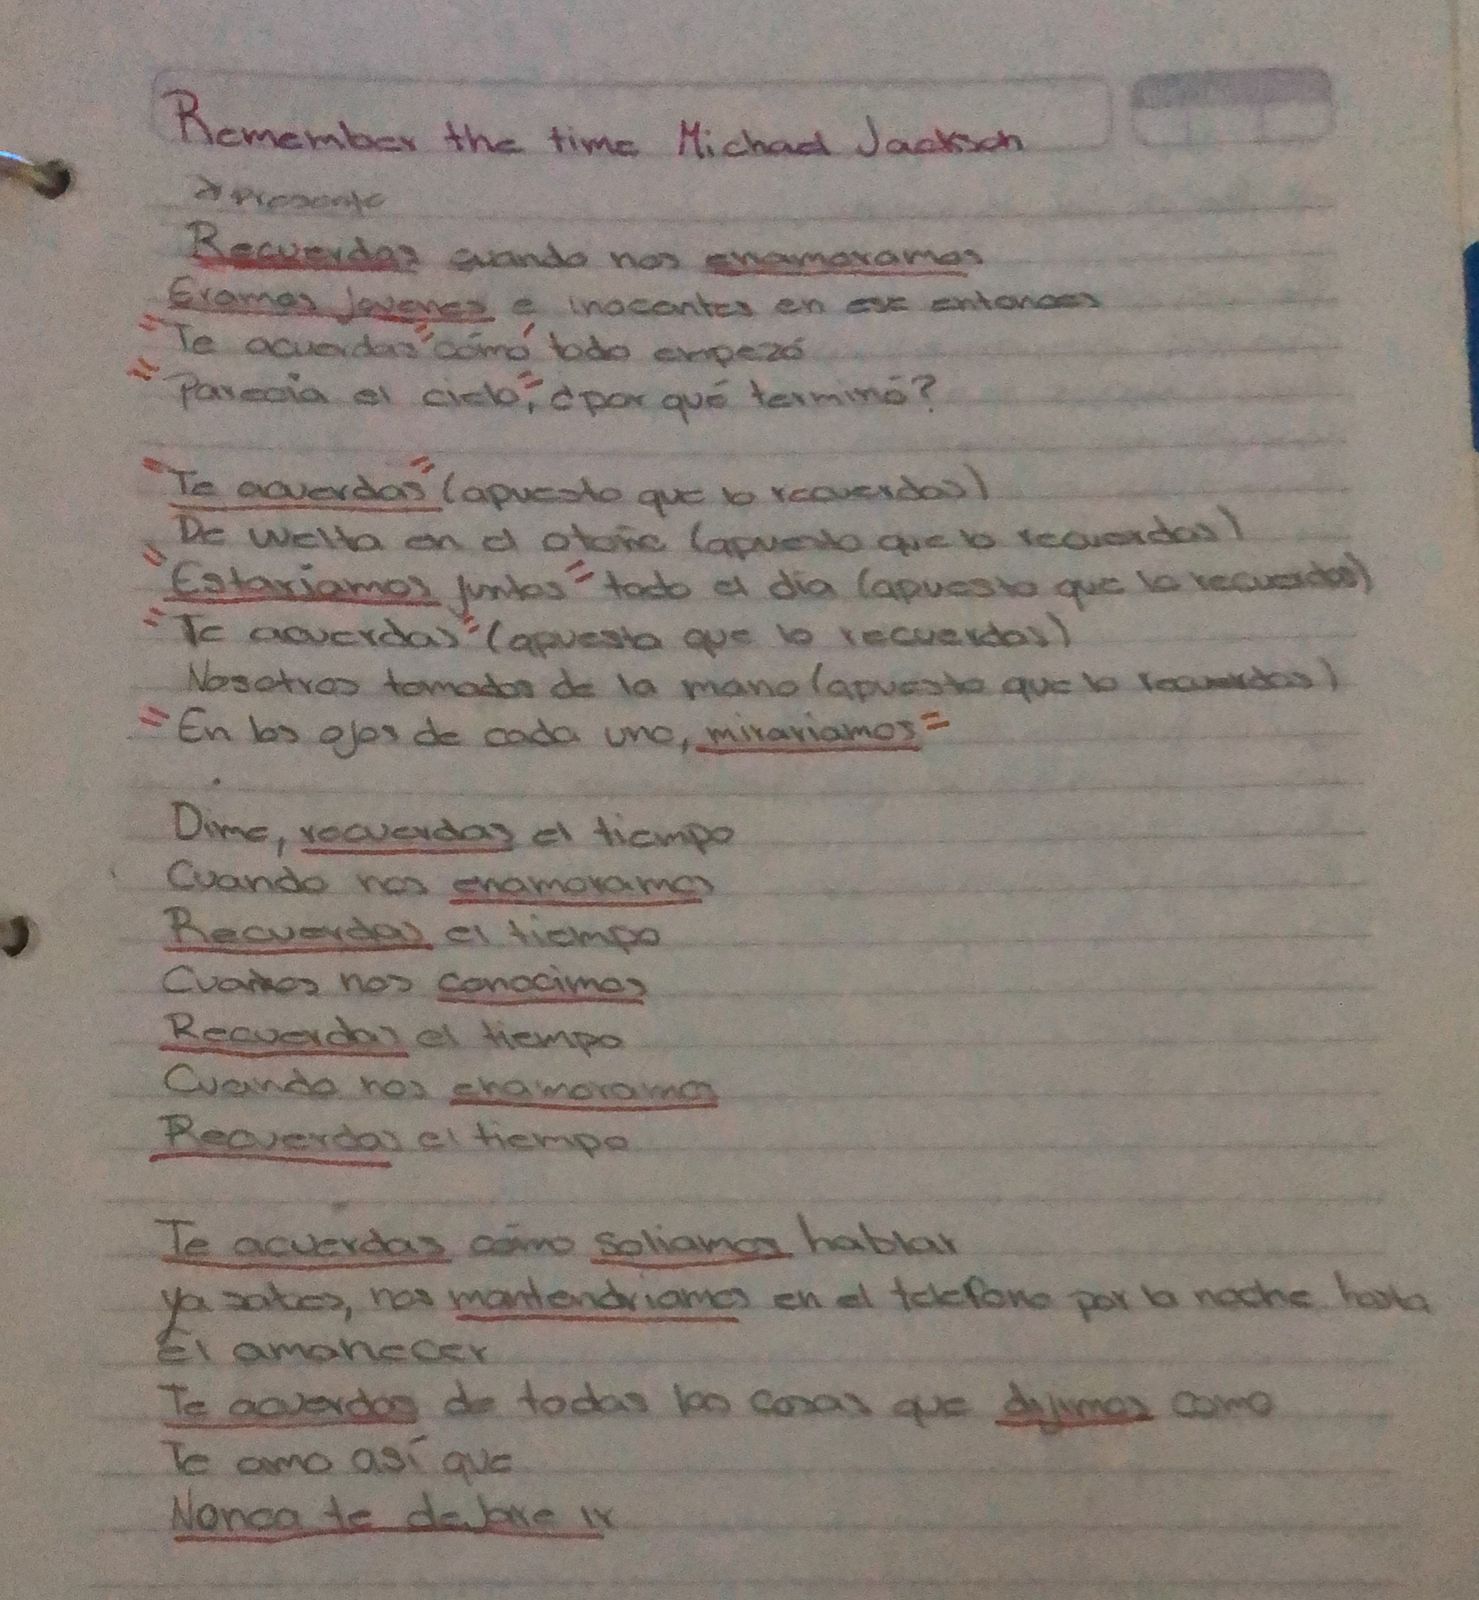 Remember the time Michael Jackson
Presente
Recuerdas cuando nos enamoramos
Eramos jovenes e inocentes en ese entonces
"Te acuerdas" cómo todo empezó
"Parecía el cielo", ¿por qué terminó?
"Te acuerdas" (apuesto que lo recuerdas)
De vuelta en el otoño (apuesto que lo recuerdas)
"Estariamos juntos" todo el día (apuesto que lo recuerdas)
"Te acuerdas" (apuesto que lo recuerdas)
Nosotros tomados de la mano (apuesto que lo recuerdas)
"En los ojos de cada uno, mirariamos"
Dime, recuerdas el tiempo
Cuando nos enamoramos
Recuerdas el tiempo
nos conocimos
Recuerdas el tiempo
Cuando nos enamoramos
Recuerdas el tiempo
Te acuerdas cómo soliamos hablar
ya sabes, nos mantendriamos en el telefono por la noche hasta
El amanecer
Te acuerdas de todas las cosas que dijimos como
Te amo así que
Nonca te dejare ir